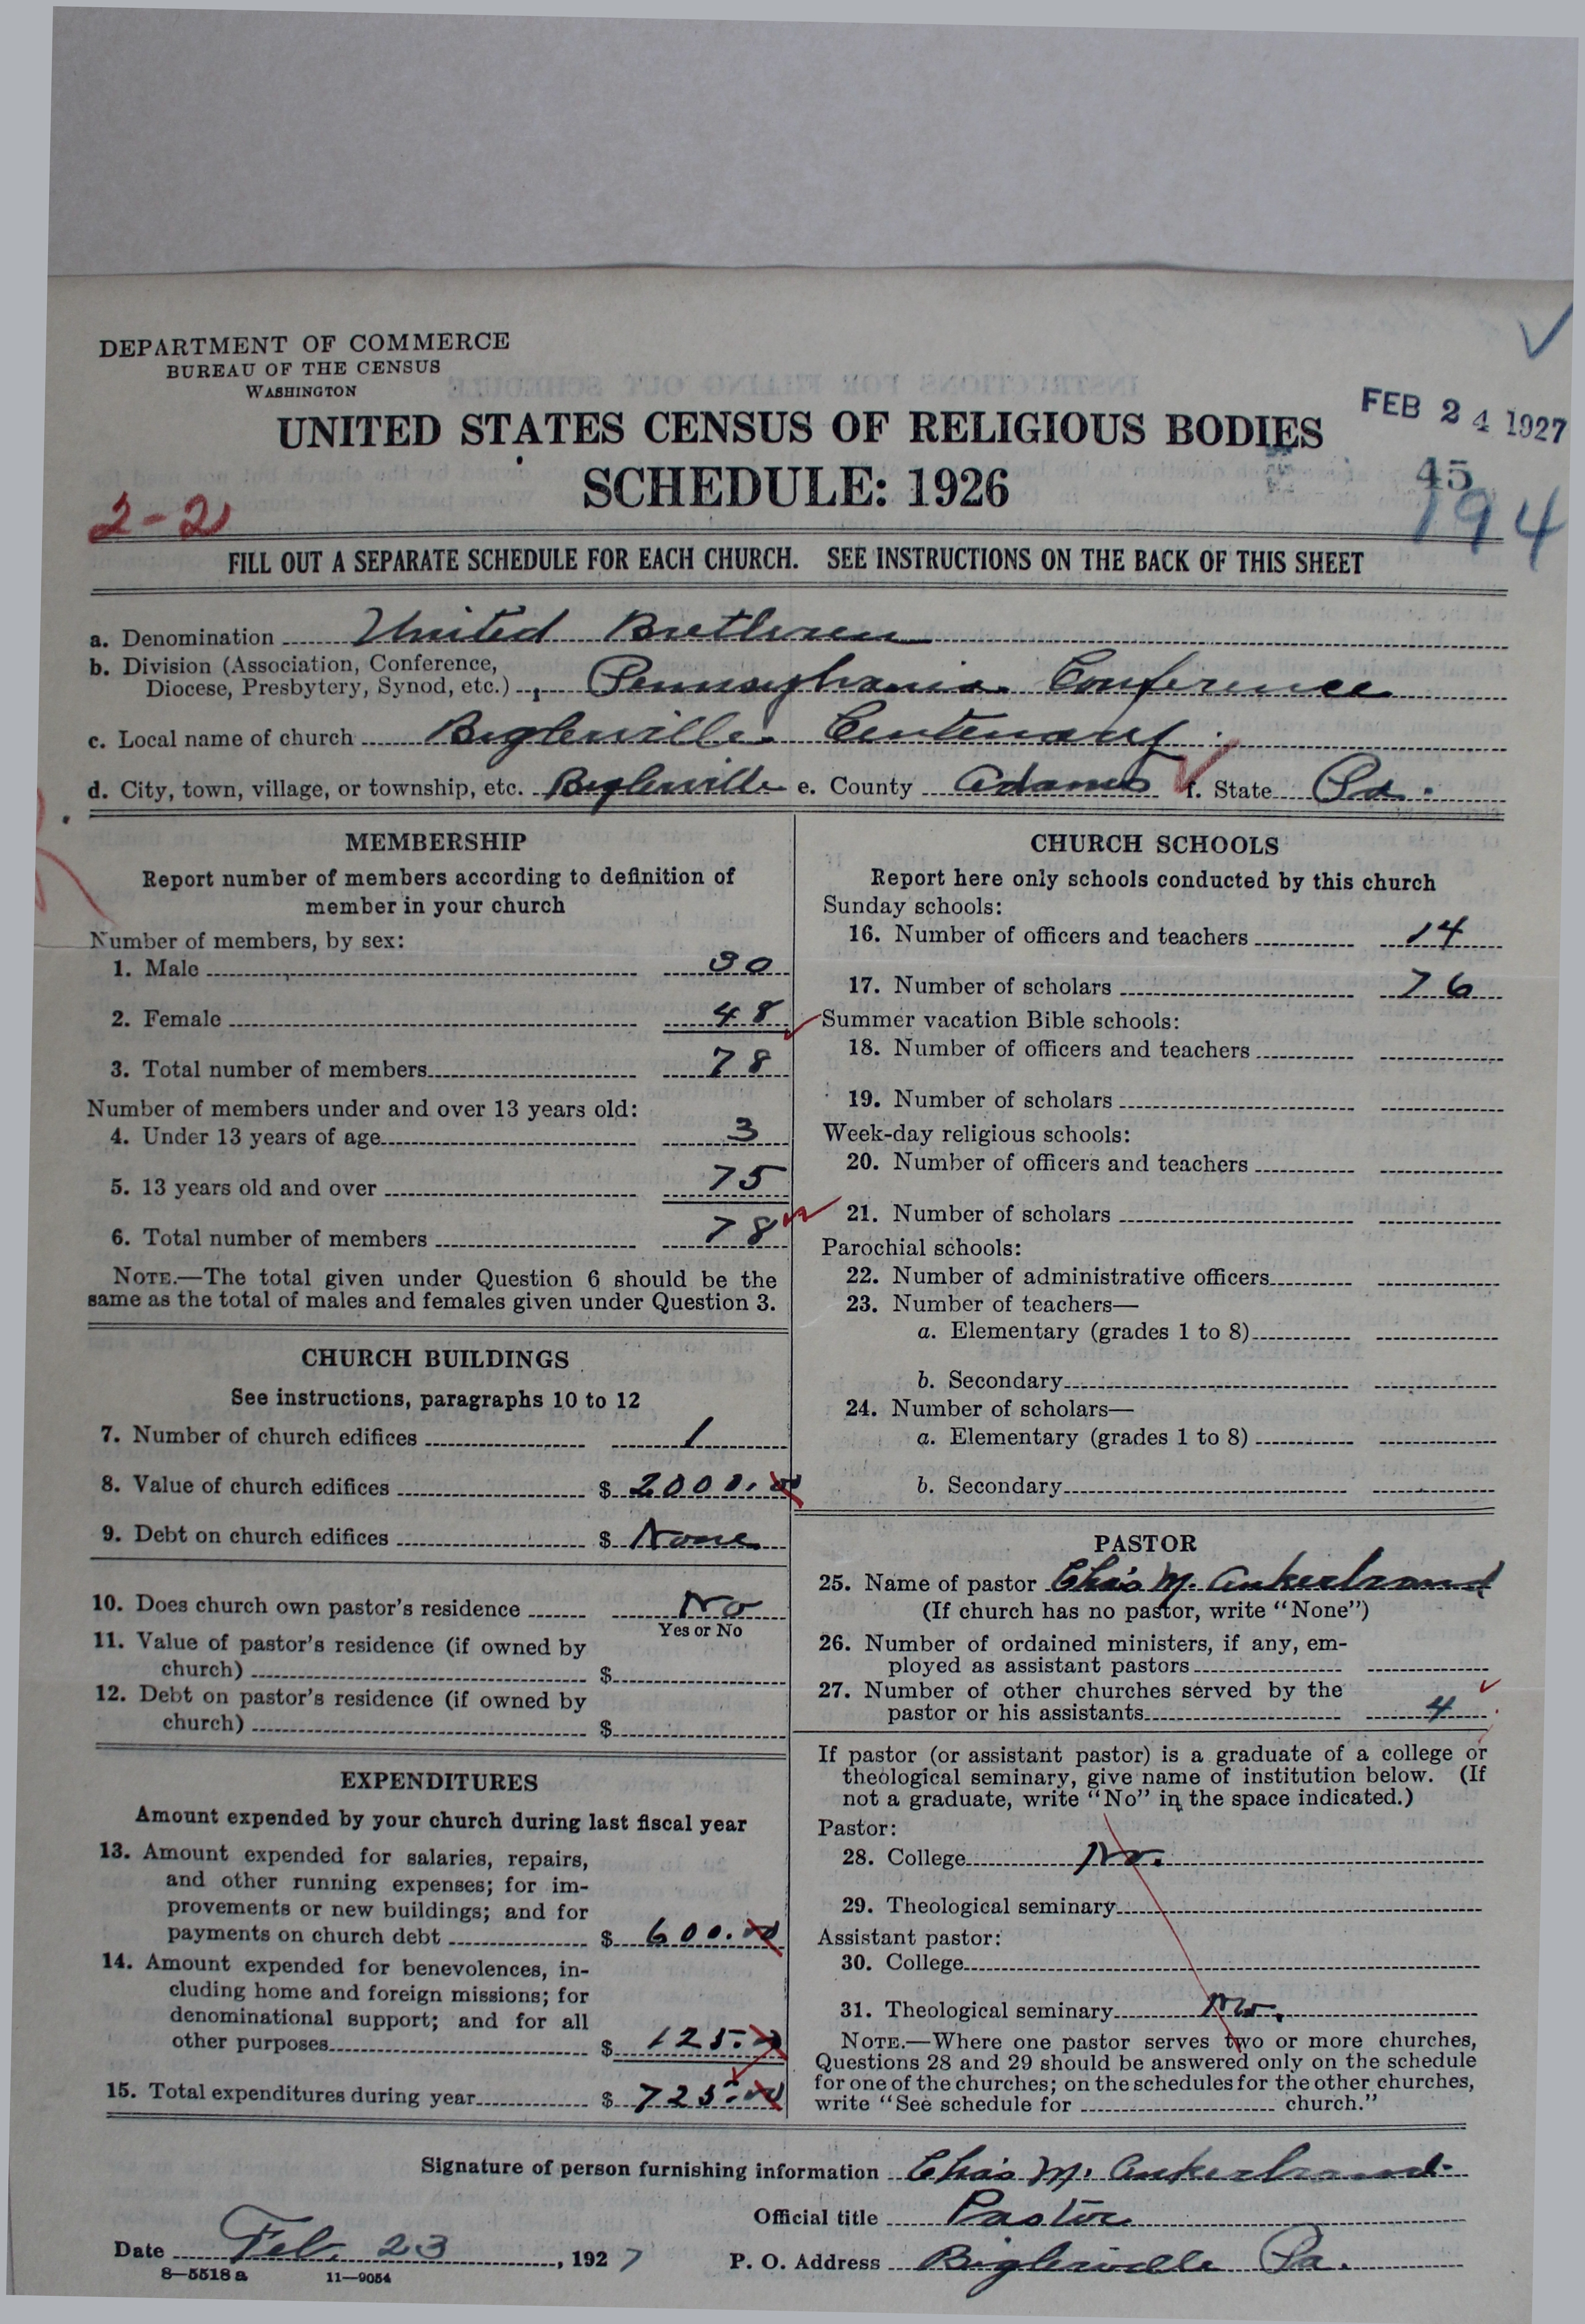 DEPARTMENT OF COMMERCE
BUREAU OF THE CENSUS
WASHINGTON
UNITED STATES CENSUS OF RELIGIOUS BODIES
SCHEDULE: 1926
FEB 24 1927
45
194
2-2
FILL OUT A SEPARATE SCHEDULE FOR EACH CHURCH. SEE INSTRUCTIONS ON THE BACK OF THIS SHEET
a. Denomination United Brethren
b. Division (Association, Conference,
Diocese, Presbytery, Synod, etc.) Pennsylvania Conference
c. Local name of church Biglerville Centenary
d. City, town, village, or township, etc. Biglerville e. County Adams f. State Pa.
MEMBERSHIP
Report number of members according to definition of
member in your church
Number of members, by sex:
1. Male 30
2. Female 48
3. Total number of members 78
Number of members under and over 13 years old:
4. Under 13 years of age 3
5. 13 years old and over 75
6. Total number of members 78
NOTE.—The total given under Question 6 should be the
same as the total of males and females given under Question 3.
CHURCH BUILDINGS
See instructions, paragraphs 10 to 12
7. Number of church edifices 1
8. Value of church edifices $ 2000.00
9. Debt on church edifices $ None
10. Does church own pastor's residence No
Yes or No
11. Value of pastor's residence (if owned by
church) $
12. Debt on pastor's residence (if owned by
church) $
EXPENDITURES
Amount expended by your church during last fiscal year
13. Amount expended for salaries, repairs,
and other running expenses; for im-
provements or new buildings; and for
payments on church debt $ 600.00
14. Amount expended for benevolences, in-
cluding home and foreign missions; for
denominational support; and for all
other purposes $ 125.00
15. Total expenditures during year $ 725.00
CHURCH SCHOOLS
Report here only schools conducted by this church
Sunday schools:
16. Number of officers and teachers 14
17. Number of scholars 76
Summer vacation Bible schools:
18. Number of officers and teachers
19. Number of scholars
Week-day religious schools:
20. Number of officers and teachers
21. Number of scholars
Parochial schools:
22. Number of administrative officers
23. Number of teachers—
a. Elementary (grades 1 to 8)
b. Secondary
24. Number of scholars—
a. Elementary (grades 1 to 8)
b. Secondary
PASTOR
25. Name of pastor Chas M. Ankerbrand
(If church has no pastor, write "None")
26. Number of ordained ministers, if any, em-
ployed as assistant pastors
27. Number of other churches served by the
pastor or his assistants 4
If pastor (or assistant pastor) is a graduate of a college or
theological seminary, give name of institution below. (If
not a graduate, write "No" in the space indicated.)
Pastor:
28. College No.
29. Theological seminary
Assistant pastor:
30. College
31. Theological seminary No.
NOTE.—Where one pastor serves two or more churches,
Questions 28 and 29 should be answered only on the schedule
for one of the churches; on the schedules for the other churches,
write "See schedule for church."
Signature of person furnishing information Chas M. Ankerbrand.
Official title Pastor
Date Feb. 23, 1927 P. O. Address Biglerville Pa.
8—5518 a 11—9054